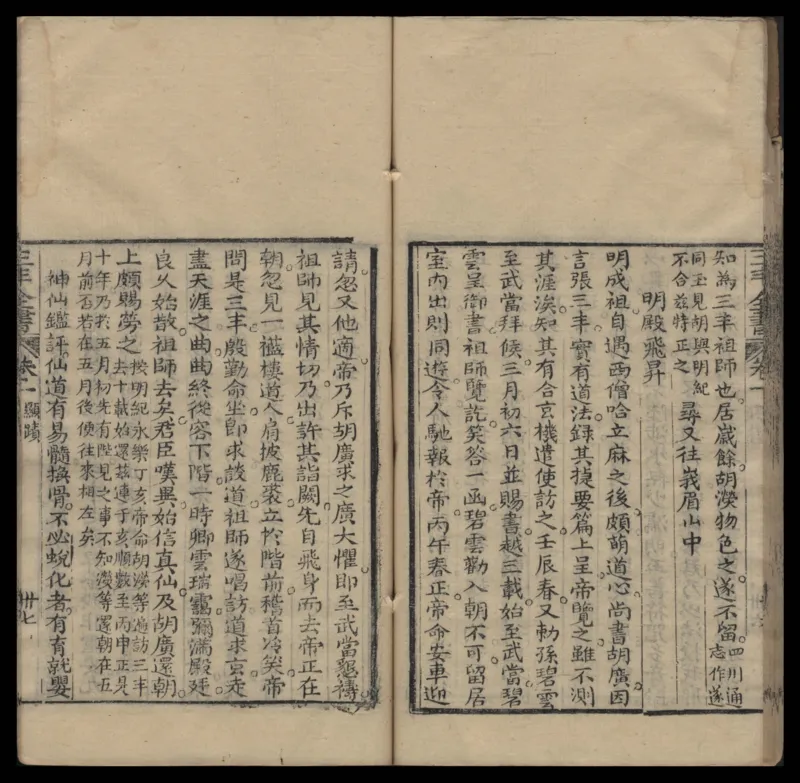 三丰全書
知為三丰祖師也居歲餘胡濙物色之遂不留四川通志作遂
同玉見胡與明紀不合茲特正之尋又往峩眉山中
明殿飛昇
明成祖自遇西僧哈立麻之後頗萌道心尚書胡廣因
言張三丰實有道法錄其捷要篇上呈帝覽之雖不測
其涯涘知其有合玄機遣使訪之壬辰春又勅孫碧雲
至武當拜候三月初六日並賜書越三載始至武當碧
雲呈御書祖師覽訖笑答一函碧雲勸入朝不可留居
室內出則同遊令人馳報於帝丙午春正帝命安車迎
請忽又他適帝乃斥胡廣求之廣大懼即至武當懇禱
祖師見其情切乃出許其詣闕先自飛身而去帝正在
朝忽見一襤褸道人肩披鹿裘立於階前稽首冷笑帝
問是三丰殷勤命坐卽求談道祖師遂唱訪道求玄走
盡天涯之曲曲終從容下階一時卿雲瑞靄彌滿殿廷
良久始散祖師去矣君臣嘆異始信真仙及胡廣還朝
上頗賜勞之按明紀永樂丁亥帝命胡濙等遍訪三丰去十載始還茲連丁亥順數至丙申正是
十年乃於五月初先有陛見之事不知濙等還朝在五
月前否若在五月後便往來相左矣
神仙鑑評仙道有易髓換骨不必蛻化者有育就嬰
三丰全書 卷二 顯蹟 卅七